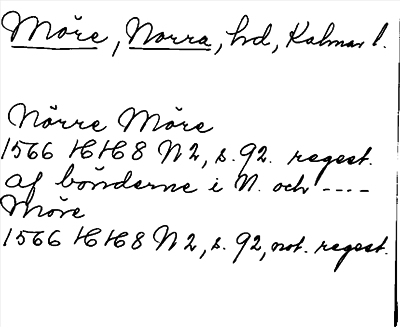 Möre, Norra, hd, Kalmar l.
Nörre Möre
1566 HH8 N2, s. 92. regest.
af bönderne i N. och ----
Möre
1566 HH8 N2, s. 92, not. regest.